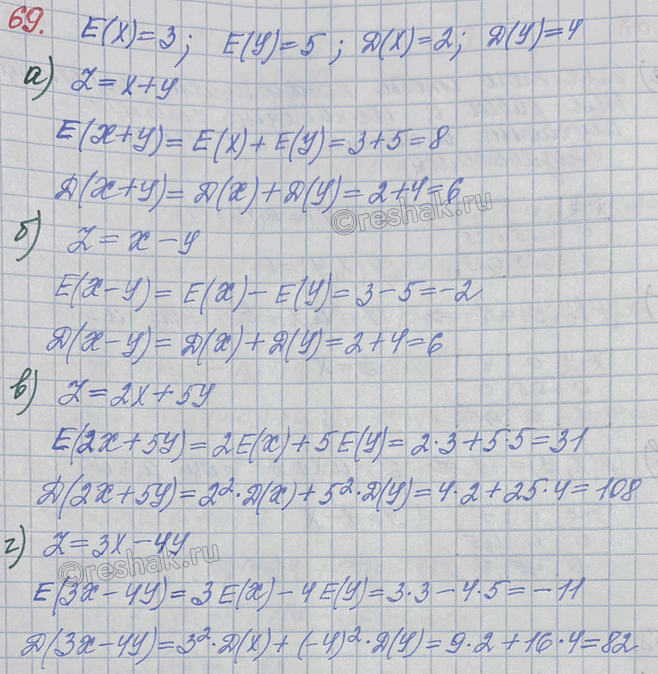 69. E(X)=3; E(Y)=5; D(X)=2; D(Y)=4
а) Z=X+Y
E(X+Y)= E(X)+E(Y)=3+5=8
D(X+Y)= D(X)+D(Y)=2+4=6
©reshak.ru
б) Z=X-Y
E(X-Y)= E(X)-E(Y)=3-5=-2
D(X-Y)= D(X)+D(Y)=2+4=6
в) Z=2X+5Y
E(2X+5Y)=2E(X)+5E(Y)=2·3+5·5=31
D(2X+5Y)=2²·D(X)+5²·D(Y)=4·2+25·4=108
г) Z=3X-4Y
©reshak.ru
E(3X-4Y)=3E(X)-4E(Y)=3·3-4·5=-11
D(3X-4Y)=3²·D(X)+(-4)²·D(Y)=9·2+16·4=82